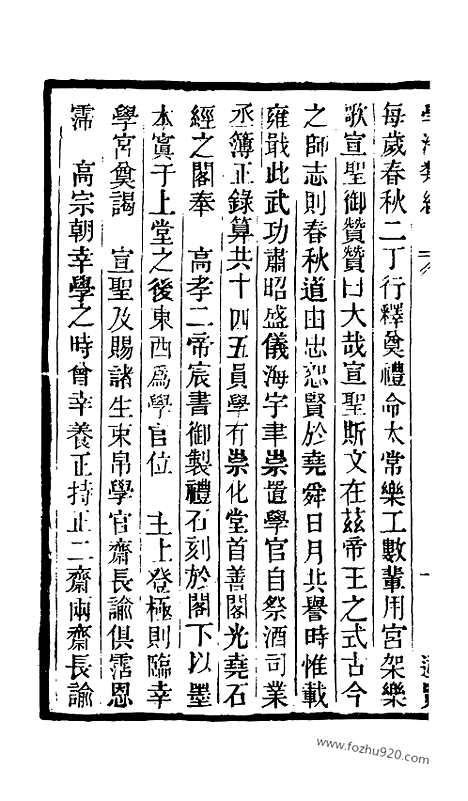 每歲春秋二丁行釋奠禮命太常樂工數輩用宮架樂
歌宣聖御贊贊曰大哉宣聖斯文在茲帝王之式古今
之師志則春秋道由忠恕賢於堯舜日月其譽時惟載
雍戢此武功肅昭盛儀海宇聿崇置學官自祭酒司業
丞簿正錄算共十四五員學有崇化堂首善閣光堯石
經之閣奉　高孝二帝宸書御製禮石刻於閣下以墨
本寘于上堂之後東西爲學官位　主上登極則臨幸
學宮奠謁　宣聖及賜諸生束帛學官齋長諭俱霑恩
霈　高宗朝幸學之時曾幸養正持正二齋兩齋長諭
www.fozhu920.com